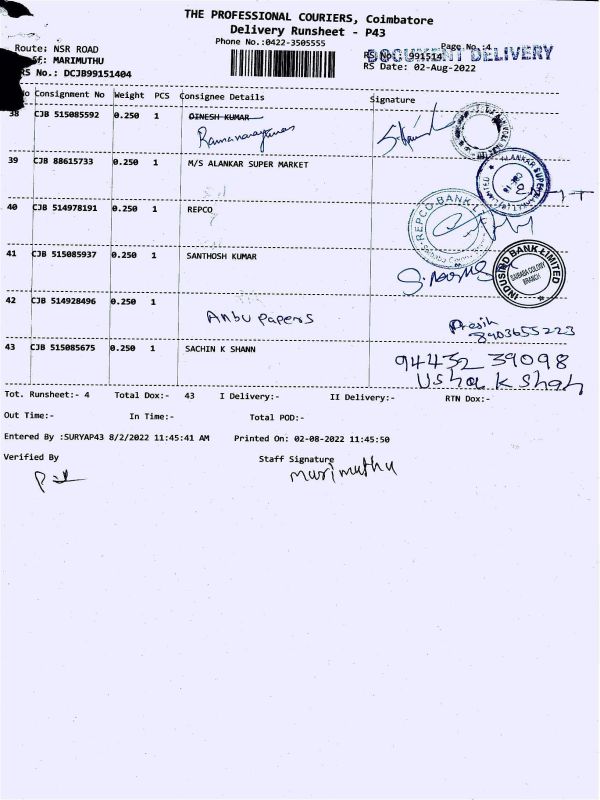 THE PROFESSIONAL COURIERS, Coimbatore
Delivery Runsheet - P43
Phone No.:0422-3505555
Page No.:4
Route: NSR ROAD
DOCUMENT DELIVERY
RS No.: 991514
Sf: MARIMUTHU
RS Date: 02-Aug-2022
RS No.: DCJB99151404
No Consignment No Weight PCS Consignee Details Signature
38 CJB 515085592 0.250 1 DINESH KUMAR
Ramanarayanas
39 CJB 88615733 0.250 1 M/S ALANKAR SUPER MARKET
ALANKAR SUPER
40 CJB 514978191 0.250 1 REPCO
REPCO BANK
41 CJB 515085937 0.250 1 SANTHOSH KUMAR
INDUSIND BANK LIMITED
SAIBABA COLONY
BRANCH
42 CJB 514928496 0.250 1
Anbu Papers
8903655223
43 CJB 515085675 0.250 1 SACHIN K SHANN
94432 39098
Usha k shah
Tot. Runsheet:- 4 Total Dox:- 43 I Delivery:- II Delivery:- RTN Dox:-
Out Time:- In Time:- Total POD:-
Entered By :SURYAP43 8/2/2022 11:45:41 AM Printed On: 02-08-2022 11:45:50
Verified By Staff Signature
marimuthu